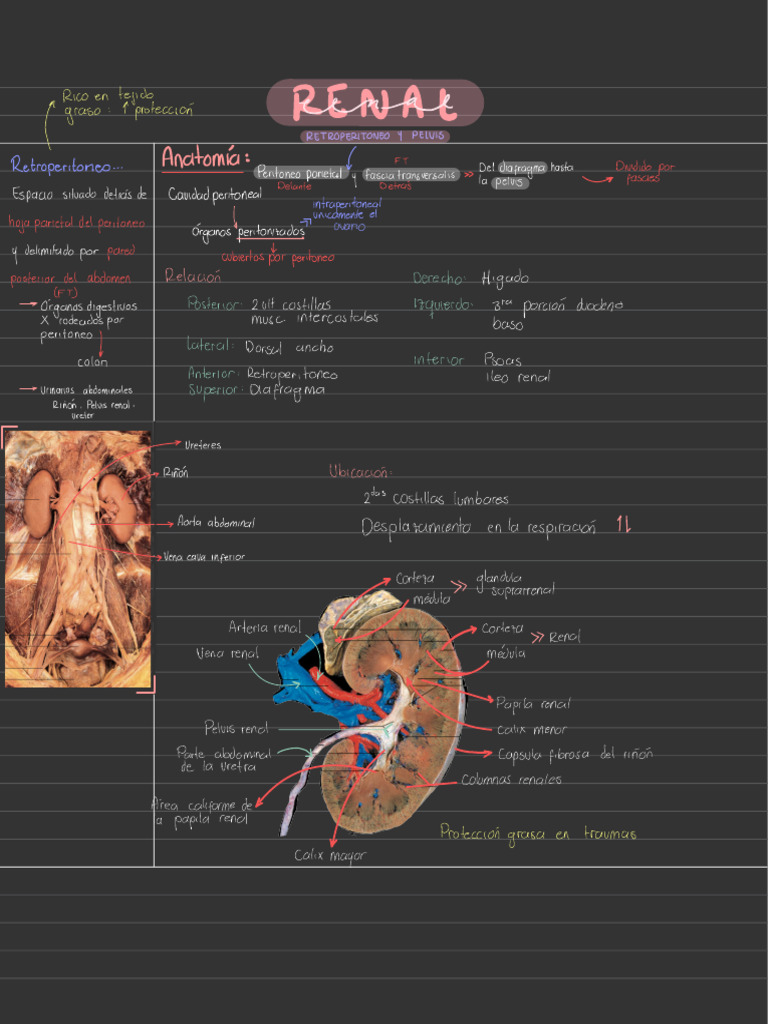 Rico en tejido
graso: ↑ protección
RENAL
renal
RETROPERITONEO Y PELVIS
Retroperitoneo...
Espacio situado detrás de
hoja parietal del peritoneo
y delimitado por pared
posterior del abdomen
(FT)
→ Órganos digestivos
X rodeados por
peritoneo
colon
→ Urinarios abdominales
Riñón. Pelvis renal.
Ureter
Anatomía:
Peritoneo parietal y fascia transversalis >> Del diafragma hasta
la pelvis
FT
Delante
Detrás
Dividido por
fascias
Cavidad peritoneal
intraperitoneal
unicamente el
ovario
Órganos peritonizados
cubiertos por peritoneo
Relación
Posterior: 2 ult costillas
musc intercostales
Lateral: Dorsal ancho
Anterior: Retroperitoneo
Superior: Diafragma
Derecho: Higado
Izquierdo: 3ra porción duodeno
baso
inferior Psoas
ileo renal
Ureteres
Riñón
Aorta abdominal
Vena cava inferior
Ubicación:
2das costillas lumbares
Desplazamiento en la respiración ↑↓
Corteza
médula
>> glandula
suprarrenal
Arteria renal
Vena renal
Corteza
médula
>> Renal
Papila renal
Calix menor
Pelvis renal
Parte abdominal
de la uretra
Capsula fibrosa del riñón
Columnas renales
Área califorme de
la papila renal
Calix mayor
Protección grasa en traumas